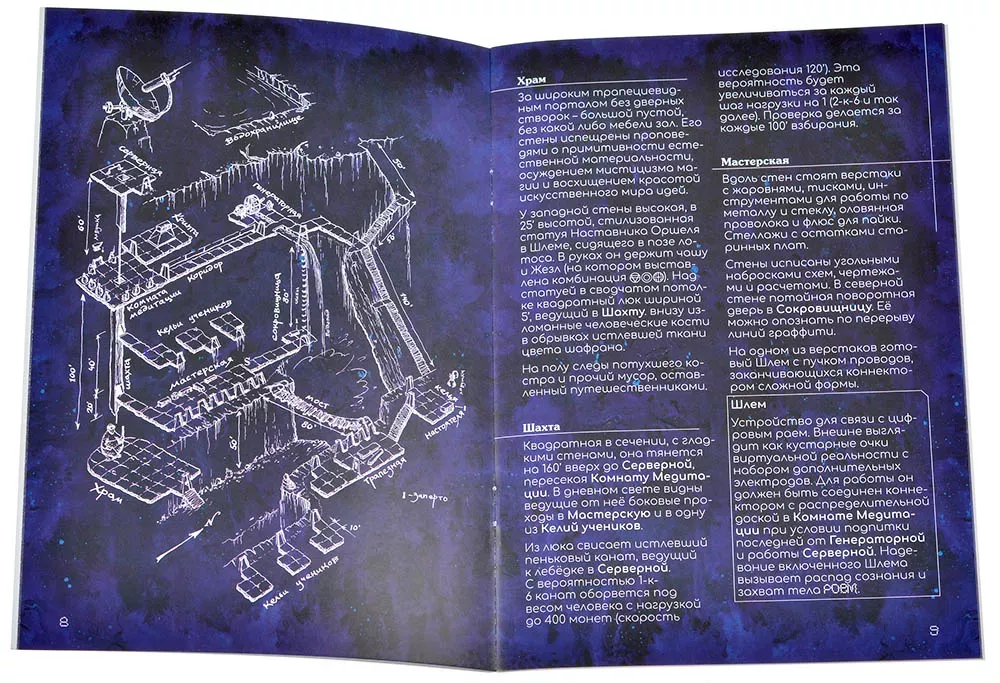 Водохранилище
серверная
60'
50'
коридор
комната
медитации
сокровищница
80'
140'
Кельи учеников
мастерская
шахта
100'
40'
20'
мост
80'
50'
Храм
трапезная
келья
настоятеля
1-заперто
N
10'
кельи учеников
8
Храм
За широким трапециевид-
ным порталом без дверных
створок – большой пустой,
без какой либо мебели зал. Его
стены испещрены пропове-
дями о примитивности есте-
ственной материальности,
осуждением мистицизма ма-
гии и восхищением красотой
искусственного мира идей.
У западной стены высокая, в
25' высотой, стилизованная
статуя Наставника Оршеля
в Шлеме, сидящего в позе ло-
тоса. В руках он держит чашу
и Жезл (на котором выстав-
лена комбинация). Над
статуей в сводчатом потол-
ке квадратный люк шириной
5', ведущий в Шахту, внизу из-
ломанные человеческие кости
в обрывках истлевшей ткани
цвета шафрана.
На полу следы потухшего ко-
стра и прочий мусор, остав-
ленный путешественниками.
Шахта
Квадратная в сечении, с глад-
кими стенами, она тянется
на 160' вверх до Серверной,
пересекая Комнату Медита-
ции. В дневном свете видны
ведущие от неё боковые про-
ходы в Мастерскую и в одну
из Келий учеников.
Из люка свисает истлевший
пеньковый канат, ведущий
к лебёдке в Серверной.
С вероятностью 1-к-
6 канат оборвется под
весом человека с нагрузкой
до 400 монет (скорость
исследования 120'). Эта
вероятность будет
увеличиваться за каждый
шаг нагрузки на 1 (2-к-6 и так
далее). Проверка делается за
каждые 100' взбирания.
Мастерская
Вдоль стен стоят верстаки
с жаровнями, тисками, ин-
струментами для работы по
металлу и стеклу, оловянная
проволока и флюс для пайки.
Стеллажи с остатками ста-
ринных плат.
Стены исписаны угольными
набросками схем, чертежа-
ми и расчетами. В северной
стене потайная поворотная
дверь в Сокровищницу. Её
можно опознать по перерыву
линий граффити.
На одном из верстаков гото-
вый Шлем с пучком проводов,
заканчивающихся коннекто-
ром сложной формы.
Шлем
Устройство для связи с циф-
ровым раем. Внешне выгля-
дит как кустарные очки
виртуальной реальности с
набором дополнительных
электродов. Для работы он
должен быть соединен конне-
ктором с распределительной
доской в Комнате Медита-
ции при условии подпитки
последней от Генераторной
и работы Серверной. Наде-
вание включенного Шлема
вызывает распад сознания и
захват тела РОЕМ.